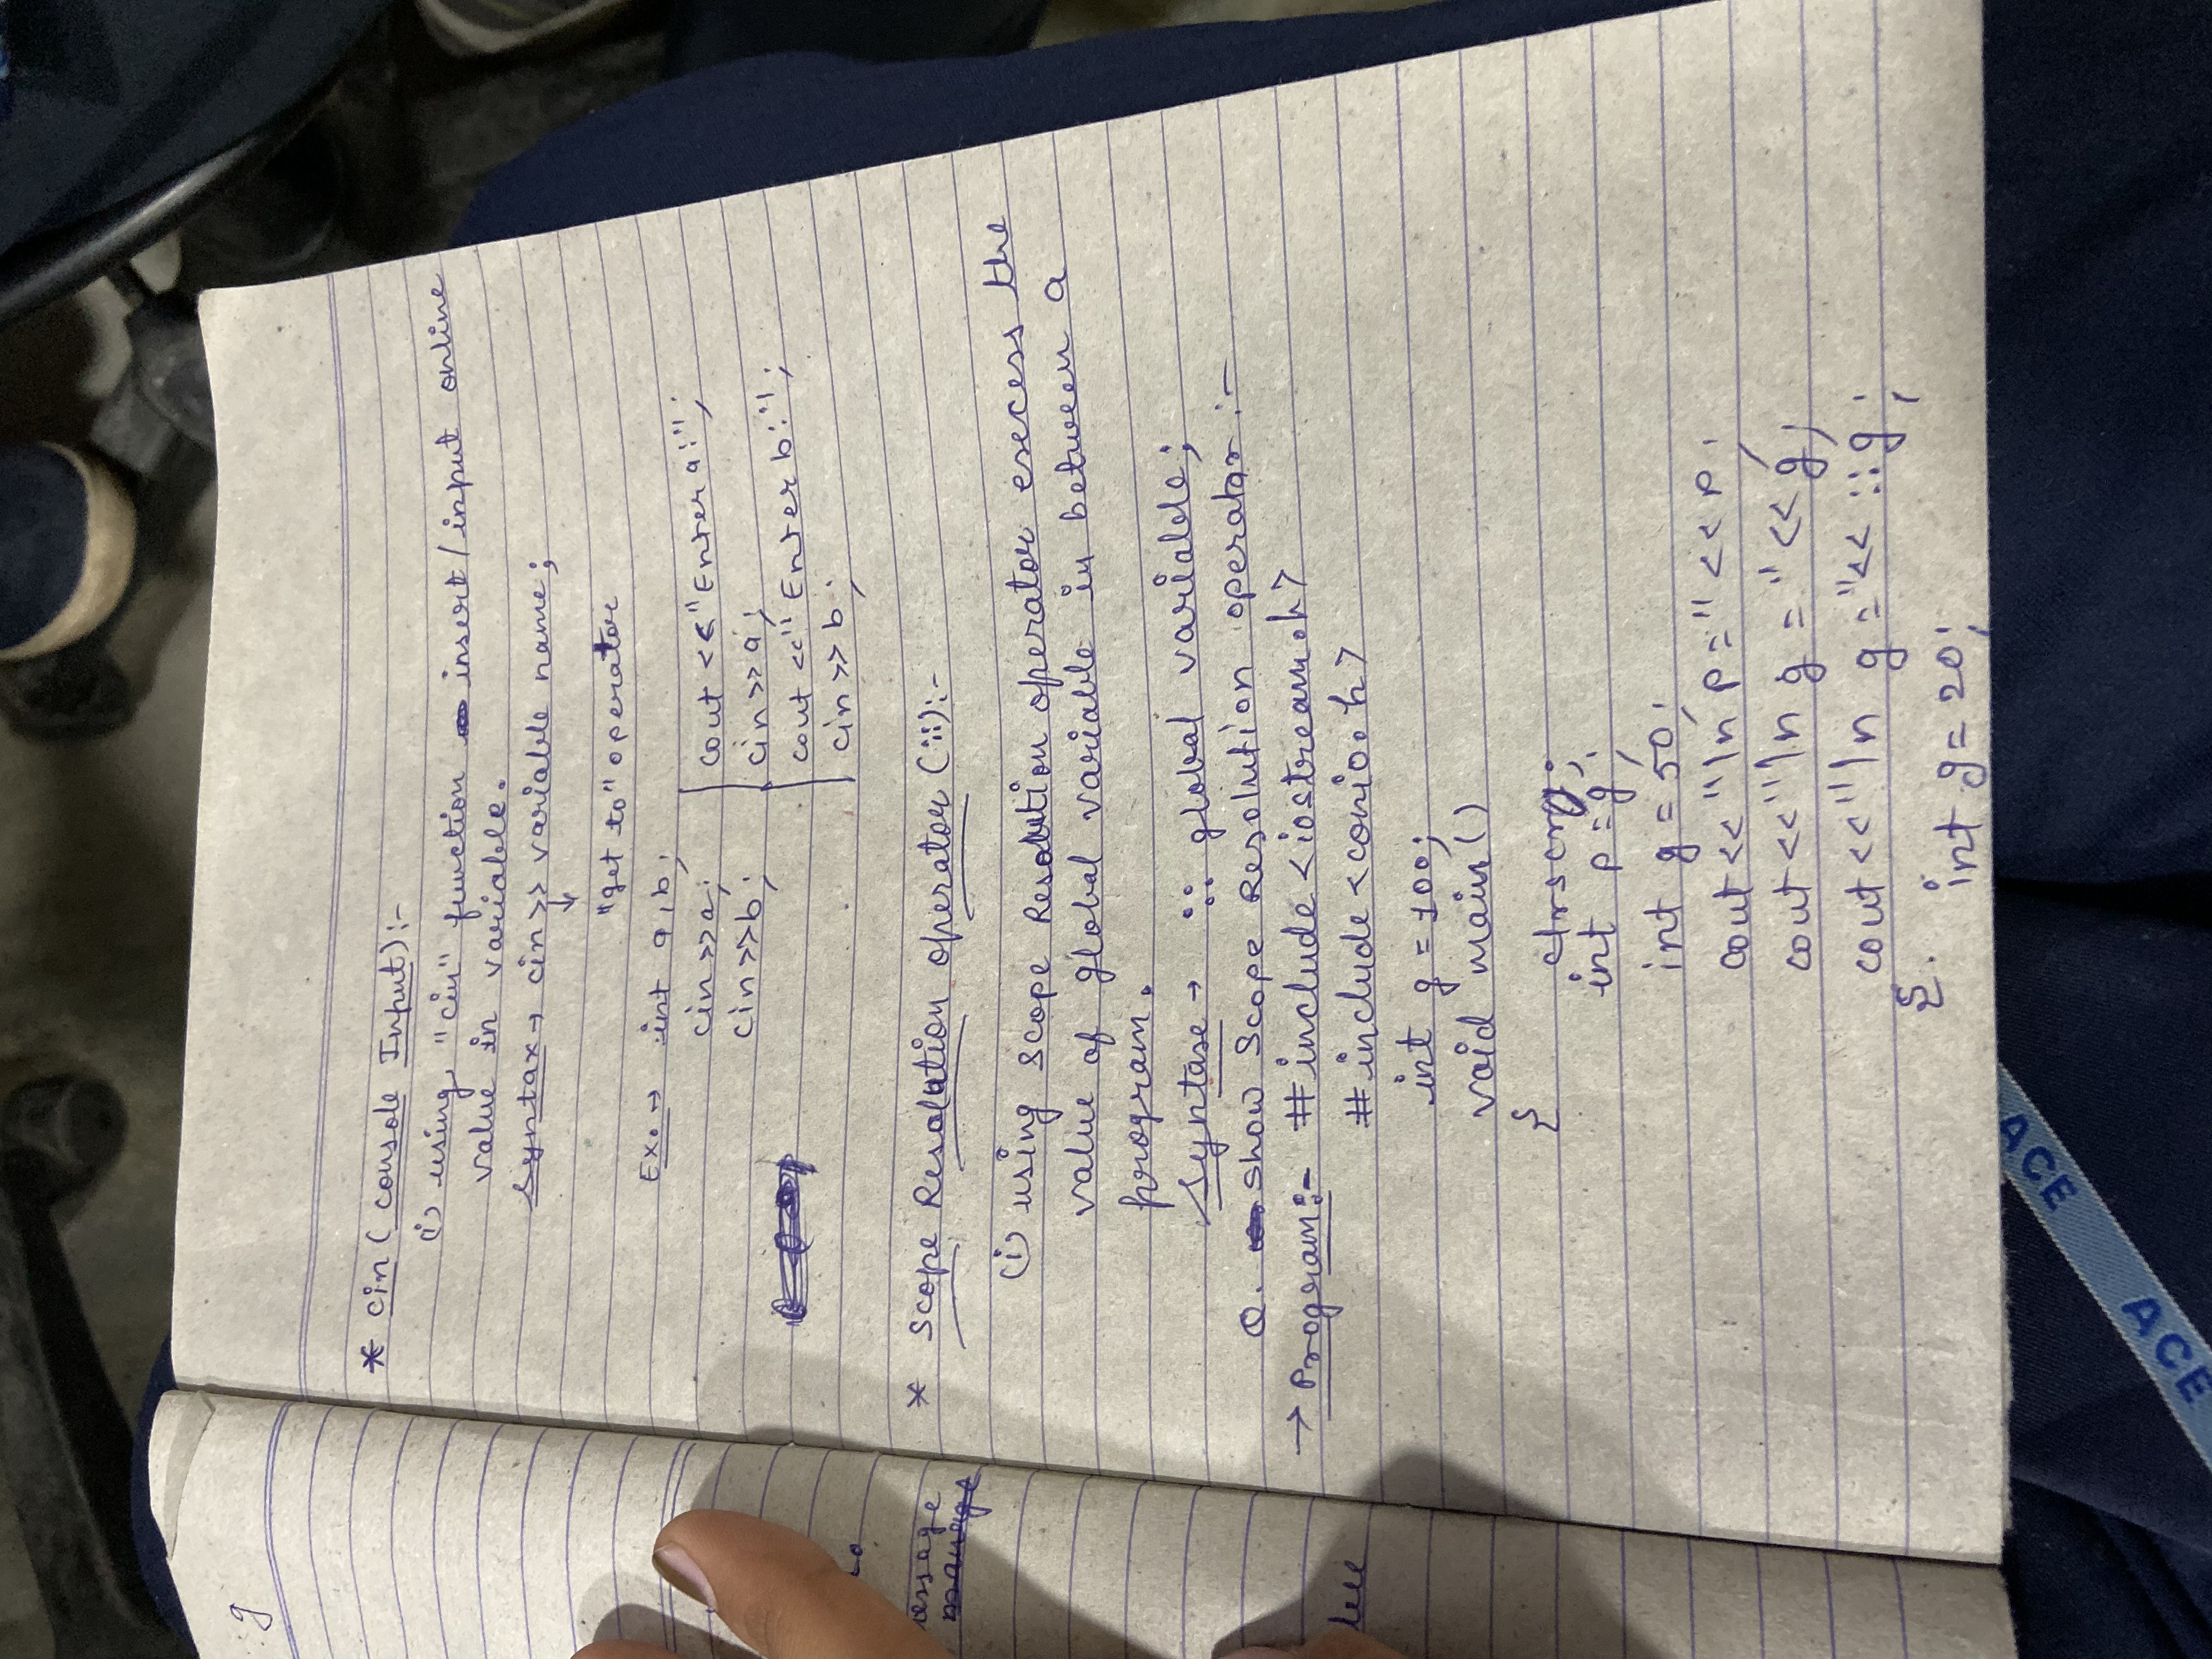 * cin (console Input):-
(i) using "cin" function insert/input online
value in variable.
Syntax → cin >> variable name;
↓
"get to" operator
Ex. → int a,b;
cin>>a;
cin>>b;
cout <<"Enter a:";
cin>>a;
cout <<"Enter b:";
cin>>b;
* Scope Resolution operator (::):-
(i) using Scope Resolution operator excess the
value of global variable in between a
program.
Syntase → :: global variable;
Q. show Scope Resolution operator:-
→ Program:- #include <iostream.h>
#include <conio.h>
int g = 100;
void main()
{
clrscr();
int p = g;
int g = 50;
cout << "\n p=" << p;
cout << "\n g = " << g;
cout << "\n g =" << ::g;
}. int g = 20;
g
essage
ACE
ACE